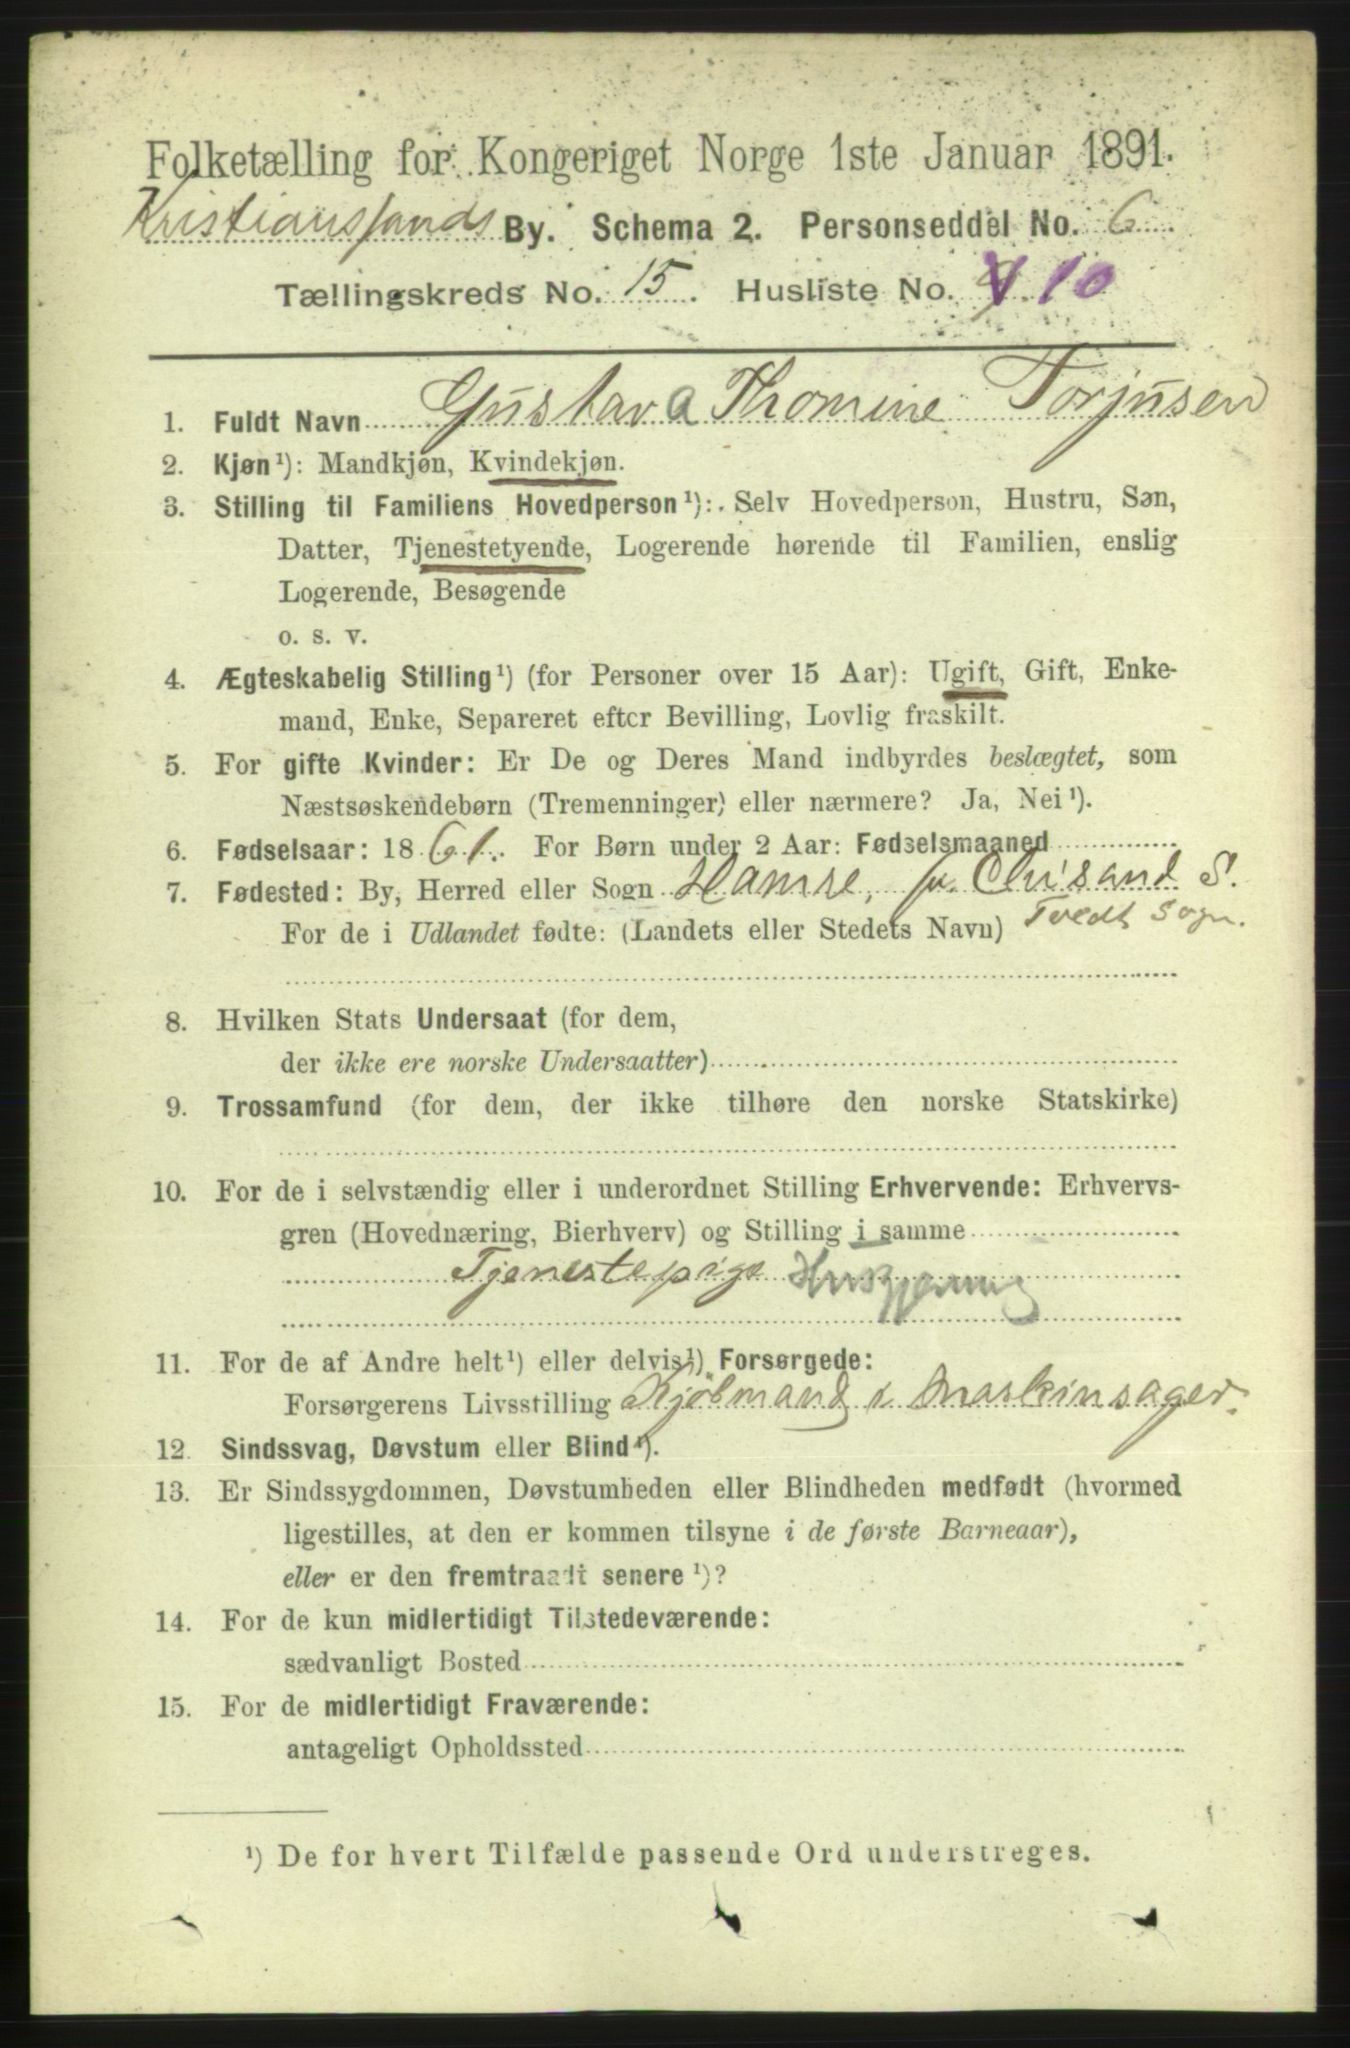 Folketælling for Kongeriget Norge 1ste Januar 1891.
Kristianssands By. Schema 2. Personseddel No. 6
Tællingskreds No. 15. Husliste No. 9. 10
1. Fuldt Navn Gustava Thomine Torjusen
2. Kjøn¹): Mandkjøn, Kvindekjøn.
3. Stilling til Familiens Hovedperson¹): Selv Hovedperson, Hustru, Søn,
Datter, Tjenestetyende, Logerende hørende til Familien, enslig
Logerende, Besøgende
o. s. v.
4. Ægteskabelig Stilling¹) (for Personer over 15 Aar): Ugift, Gift, Enke-
mand, Enke, Separeret efter Bevilling, Lovlig fraskilt.
5. For gifte Kvinder: Er De og Deres Mand indbyrdes beslægtet, som
Næstsøskendebørn (Tremenninger) eller nærmere? Ja, Nei¹).
6. Fødselsaar: 1861. For Børn under 2 Aar: Fødselsmaaned
7. Fødested: By, Herred eller Sogn Hamre, pr. Chrisand S.
For de i Udlandet fødte: (Landets eller Stedets Navn) Tvedt Sogn.
8. Hvilken Stats Undersaat (for dem,
der ikke ere norske Undersaatter)
9. Trossamfund (for dem, der ikke tilhøre den norske Statskirke)
10. For de i selvstændig eller i underordnet Stilling Erhvervende: Erhvervs-
gren (Hovednæring, Bierhverv) og Stilling i samme
Tjenestepige Husgjerning
11. For de af Andre helt¹) eller delvis¹) Forsørgede:
Forsørgerens Livsstilling Kjøbmand i Maskinsager.
12. Sindssvag, Døvstum eller Blind¹).
13. Er Sindssygdommen, Døvstumheden eller Blindheden medfødt (hvormed
ligestilles, at den er kommen tilsyne i de første Barneaar),
eller er den fremtraadt senere¹)?
14. For de kun midlertidigt Tilstedeværende:
sædvanligt Bosted
15. For de midlertidigt Fraværende:
antageligt Opholdssted
¹) De for hvert Tilfælde passende Ord understreges.